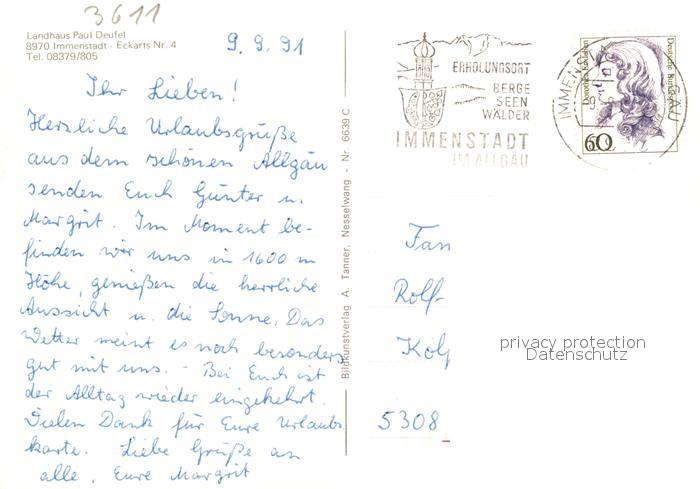 3611
Landhaus Paul Deufel
8970 Immenstadt - Eckarts Nr. 4
Tel. 08379/805
9.9.91
Ihr Lieben!
Herzliche Urlaubsgrüße
aus dem schönen Allgäu
senden Euch Günter u.
Margrit. Im Moment be-
finden wir uns in 1600 m
Höhe, genießen die herrliche
Aussicht u. die Sonne. Das
Wetter meint es noch besonders
gut mit uns. - Bei Euch ist
der Alltag wieder eingekehrt.
Vielen Dank für Eure Urlaubs
karte. Liebe Grüße an
alle, Eure Margrit
Bildkunstverlag A. Tanner, Nesselwang - Nr. 6639 C
ERHOLUNGSORT
BERGE
SEEN
WÄLDER
IMMENSTADT
IM ALLGÄU
Deutsche Bundespost
60
Fam
Rolf-
5308
privacy protection
Datenschutz